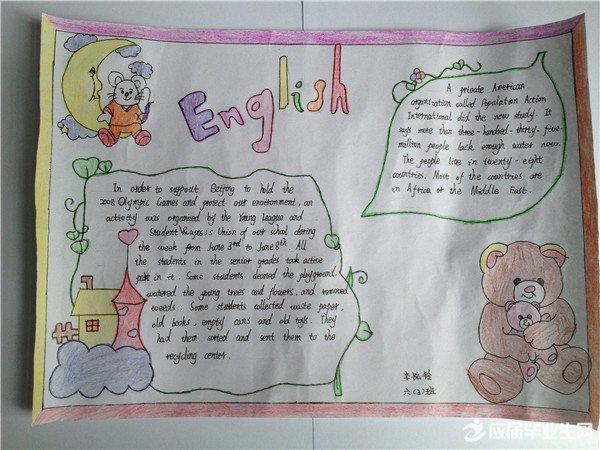 English
In order to support Beijing to hold the
2008 Olympic Games and protect our environment, an
activity was organized by the Young League and
Student Union of our school during
the week from June 3rd to June 8th. All
the students in the senior grades took active
part in it. Some students cleaned the playground.
watered the young trees and flowers, and removed
weeds. Some students collected waste paper,
old books, empty cans and old toys. They
had them sorted and sent them to the
recycling center.
A private American
organization called Population Action
International did the new study. It
says more than three-hundred-thirty-five-
million people lack enough water now.
The people live in twenty-eight
countries. Most of the countries are
in Africa or the Middle East.
六(3)班
应届毕业生网